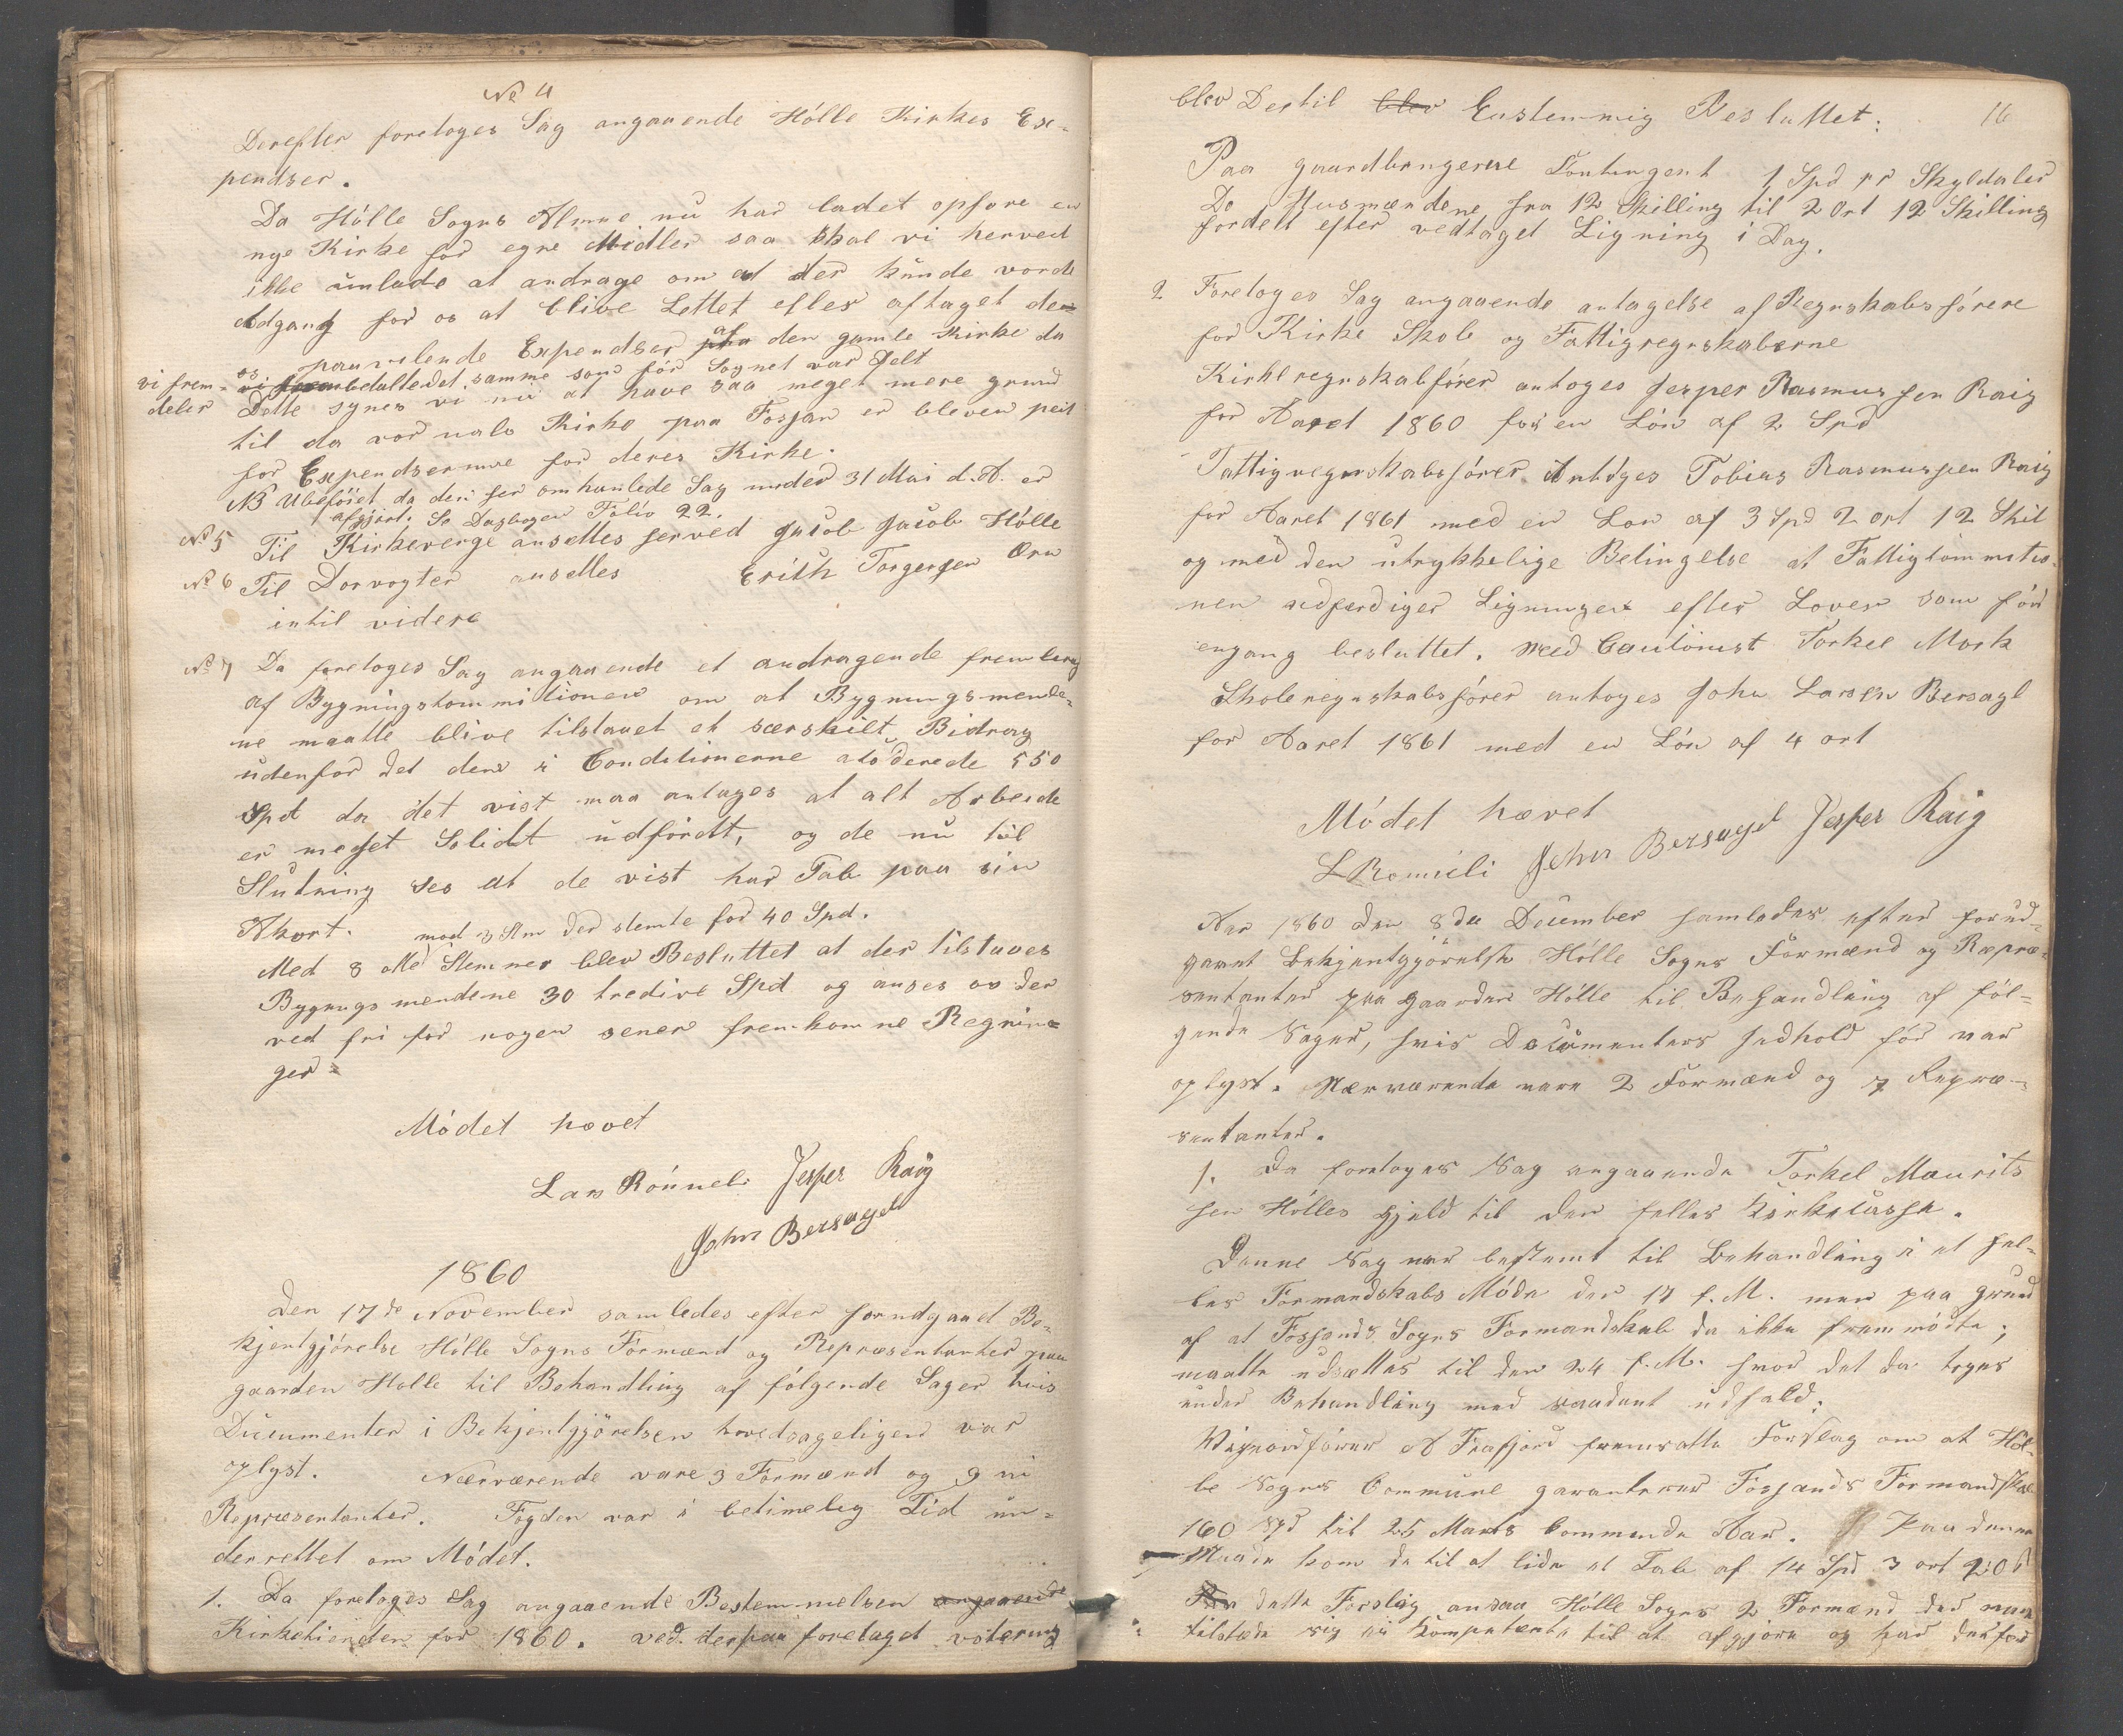 No 4
Derefter foretoges Sag angaaende Hólle Kirkes Ex-
pendser.
Da Hólle Sogns Almue nu har ladet opføre en
nye Kirke for egne Midler saa skal vi herved
ikke ûnlade at andrage om at der kûnde vorde
Adgang for os at blive Lettet eller aftaget den
os paavilende Expendser af den gamle Kirke da
vi frem- betaltedet samme som för Sognet var delt
deler Dette synes vi nû at have saa meget mere grund
til da vor nabo Kirke paa Fosjan er bleven peit
for Expendserne for deres Kirke.
NB Ubeföiet da den her omhanlede Sag under 31 Mai d.A. er
afgjort. Se Dagbogen Folio 22.
No 5 Til Kirkeverge ansettes herved Jacob Jacob Hólle
No 6 Til Dorvogter ansettes Erich Torgersen Ørn
intil videre
No 7 Da foretoges Sag angaaende et andragende fremlevg
af Bygningskommitionen om at Bygningsmende-
ne maatte blive tilstaaet et særskilt Bidrag
ûdenfor det dem i Conditionerne 550
Spd da det vist maa antages at alt Arbeide
er meget Solidt ûdfórdt, og de nû til
Slutning ses at de vist har Tab paa sin
Akort. mod 3 Stm der stemte for 40 Spd.
Med 8 otte Stemmer blev Besluttet at der tilstaaes
Bygnngs mendene 30 tredive Spd og anses os der
ved fri for nogen sener fremkomne Regnin-
ger
Módet hævet
Lars Rónneli Jesper Raig
John Bersagel
1860
Den 17de November samledes efter forudgaaet Be-
kjentgjórelse Hólle Sogns Formænd og Repræsentanter paa
gaarden Holle til Behandling af fólgende Sager hvis
Dücumenter i Bekjentgjörelsen hovedsageligen var
oplyst. Nærværende vare 3 Formænd og 9 ni
Repræsentanter. Fogden var i betimelig Tid un-
derrettet om Módet.
1. Da foretoges Sag angaaende Bestemmelsen angaaende
Kirketienden for 1860. ved derpaa foretaget votering
16
blev Dertil blev Enstemmig Besluttet:
Paa gaardbrugerne Contingent 1 Spd pr Skyldaler
Do Husmændene fra 12 Skilling til 2 Ort 12 Skilling
fordelt efter vedtaget Ligning i Dag.
2 Foretoges Sag angaaende antagelse af Regnskabsfórere
for Kirke Skole og Fattigregnskaberne
Kirkeregnskabfórer antoges Jesper Rasmussen Raig
for Aaret 1860 for en Lón af 2 Spd
Fattigregnskabsfórer Antoges Tobias Rasmussen Raig
for Aaret 1861 med en Lon af 3 Spd 2 ort 12 Skil
og med den ûtrykkelige Betingelse at Fattigkommitio-
nen udferdiger Ligningen efter Loven som för
engang besluttet. med Cautionist Torkel Mork
Skoleregnskabsfórer antoges John Larsen Bersagl
for Aaret 1861 med en Lón af 4 ort
Módet hævet
L Romüli John Bersagel Jesper Raig
Aar 1860 den 8de December samledes efter forud-
gaaet Bekjentgjörelse Hólle Sogns Formænd og Repræ-
sentanter paa Gaarden Hólle til Behandling af föl-
gende Sager, hvis Documenters Indhold för var
oplyst. Nærværende vare 2 Formænd og 7 Repræ-
sentanter.
1. Da foretoges Sag angaaende Torkel Maurits
sen Hólles Gjæld til den felles Kirkecasse.
Denne Sag var bestemt til Behandling i et fel-
les Formandskabs Móde den 17 f.M. men paa Grund
af at Fossands Sogns Formandskab da ikke fremmödte,
maatte udsættes til den 24 f.M. hvor det da toges
under Behandling med saadant ûdfald.
Viseordfórer A Frafjord fremsatte Forslag om at Hól-
le Sogns Commüne garanterer Fossands Formandskab
160 Spd til 25 Marts kommende Aar. Paa denne
Maade kom de til at lide et Tab af 14 Spd 3 ort 20 s
Paa dette Forslag ansaa Hólle Sogns 2 Formænd der var
tilstede sig ei Kompetente til at afgjøre og har derfor